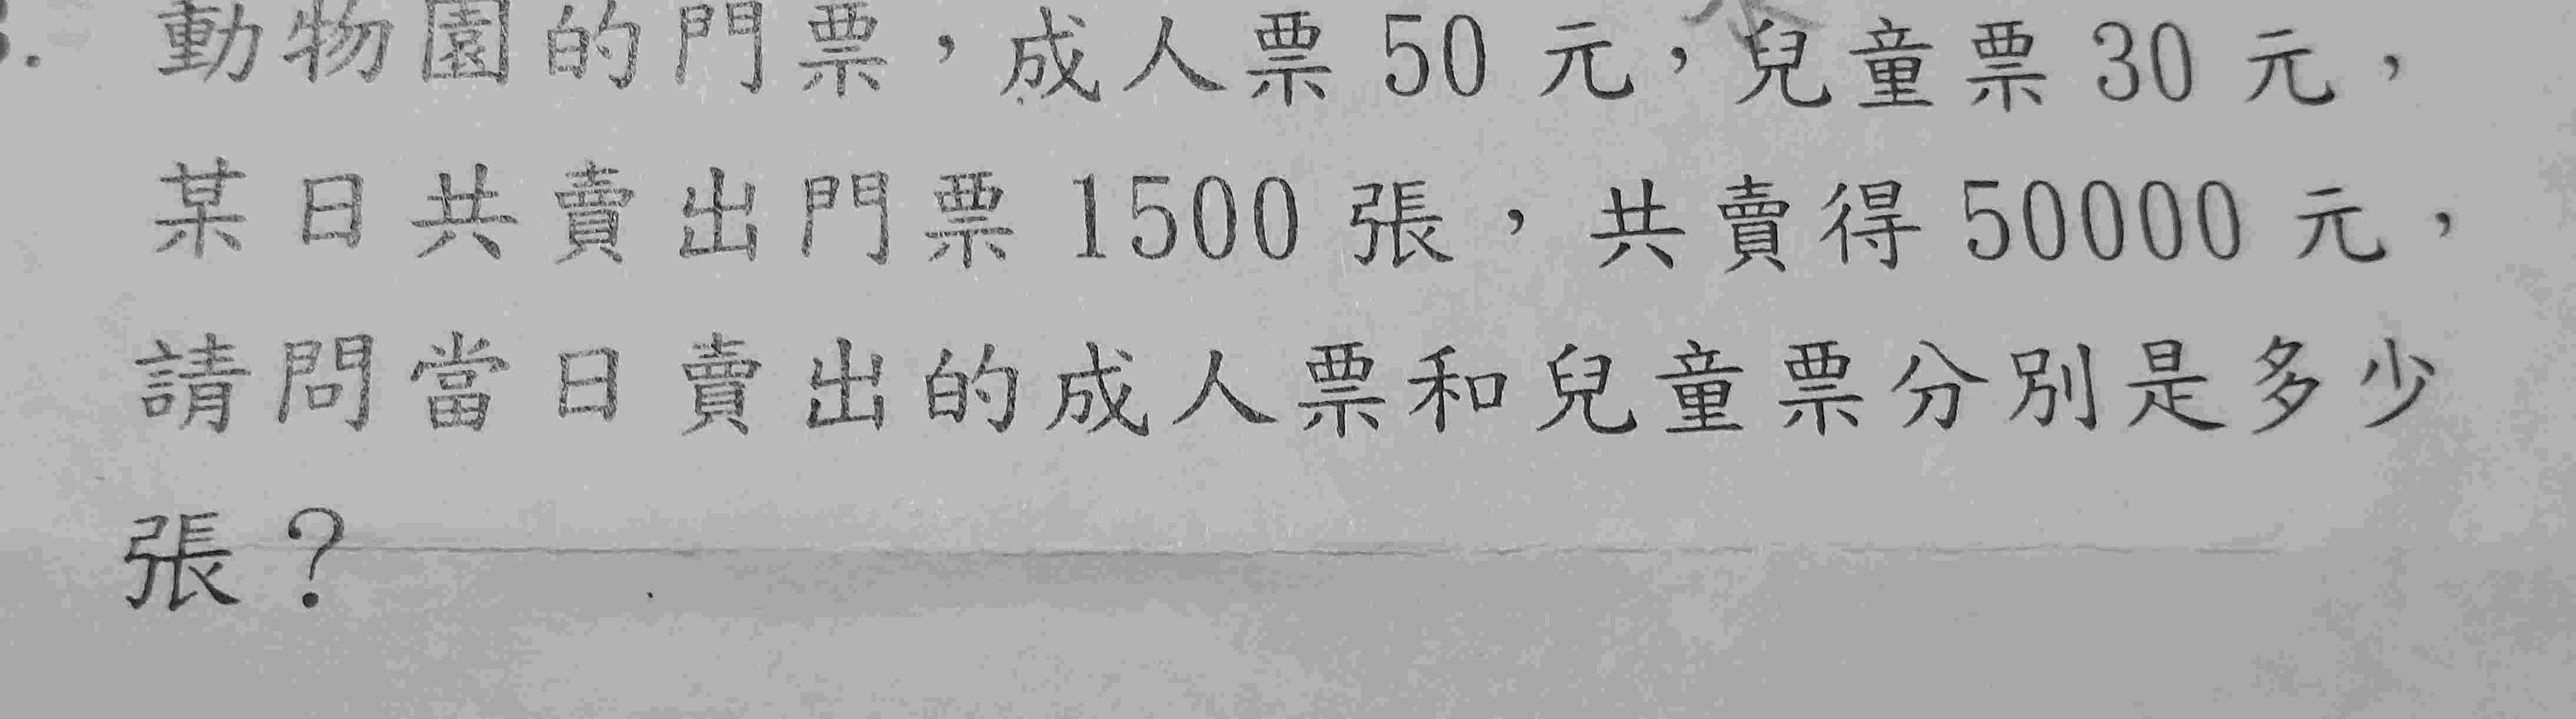 動物園的門票，成人票 50 元，兒童票 30 元，
某日共賣出門票 1500 張，共賣得 50000 元，
請問當日賣出的成人票和兒童票分別是多少
張？